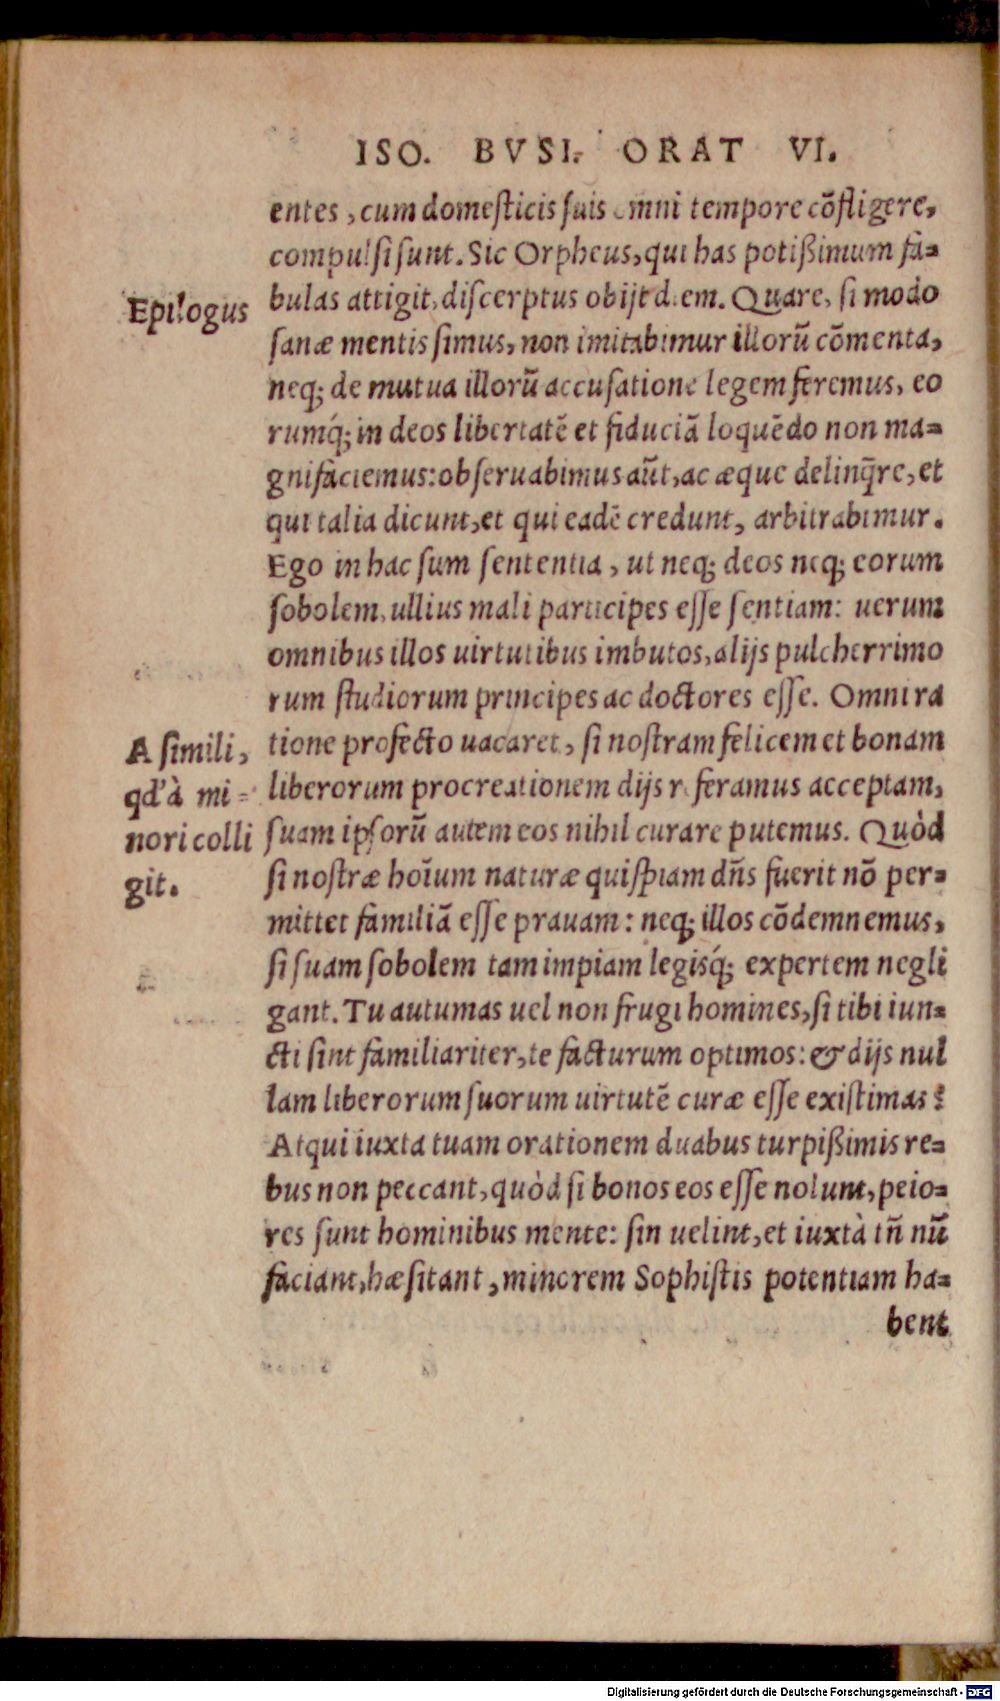 ISO. BVSI. ORAT VI.
entes, cum domesticis suis omni tempore cõfligere,
compulsi sunt. Sic Orpheus, qui has potißimum fa-
Epilogus
bulas attigit, discerptus obijt diem. Quare, si modo
sanæ mentis simus, non imitabimur illorũ cõmenta,
neq; de mutua illorũ accusatione legem feremus, eo
rumq́; in deos libertatẽ et fiduciã loquẽdo non ma-
gnifaciemus: obseruabimus aũt, ac æque delinq̃re, et
qui talia dicunt, et qui eadẽ credunt, arbitrabimur.
Ego in hac sum sententia, ut neq; deos neq; eorum
sobolem, ullius mali participes esse sentiam: uerum
omnibus illos uirtutibus imbutos, alijs pulcherrimo
rum studiorum principes ac doctores esse. Omni ra
A simili,
qd' à mi-
nori colli
git.
tione profecto uacaret, si nostram felicem et bonam
liberorum procreationem dijs referamus acceptam,
suam ipsorũ autem eos nihil curare putemus. Quòd
si nostræ hoĩum naturæ quispiam dñs fuerit nõ per-
mittet familiã esse prauam: neq; illos cõdemnemus,
si suam sobolem tam impiam legisq́; expertem negli
gant. Tu autumas uel non frugi homines, si tibi iun-
cti sint familiariter, te facturum optimos: & dijs nul
lam liberorum suorum uirtutẽ curæ esse existimas?
Atqui iuxta tuam orationem duabus turpißimis re-
bus non peccant, quòd si bonos eos esse nolunt, peio-
res sunt hominibus mente: sin uelint, et iuxtà tñ nũ
faciant, hæsitant, minorem Sophistis potentiam ha-
bent
Digitalisierung gefördert durch die Deutsche Forschungsgemeinschaft - DFG